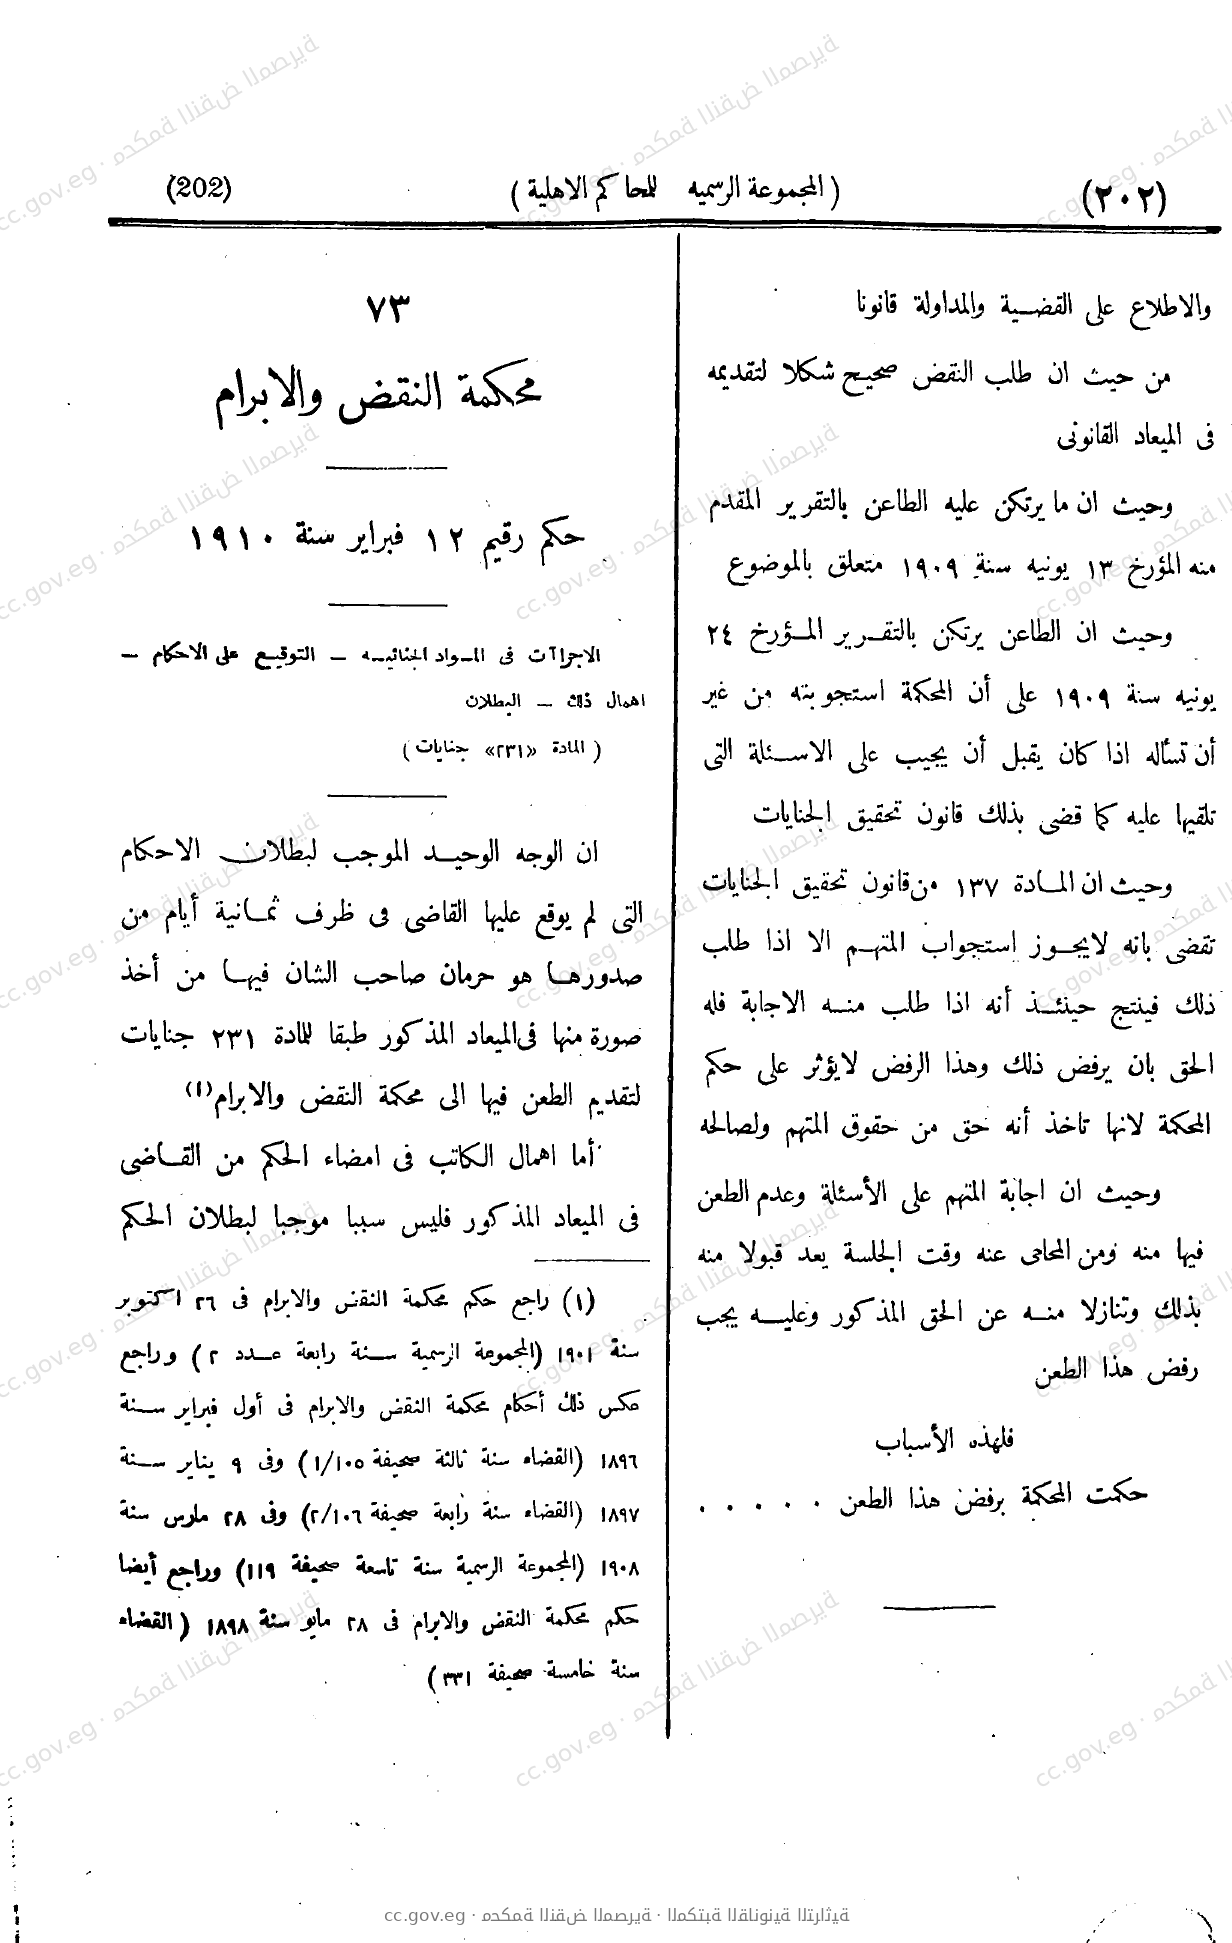 (٢٠٢) ( المجموعة الرسميه للمحاكم الاهلية ) (202)
والاطلاع على القضية والمداولة قانونا
من حيث ان طلب النقض صحيح شكلا لتقديمه
فى الميعاد القانونى
وحيث ان ما يرتكن عليه الطاعن بالتقرير المقدم
منه المؤرخ ١٣ يونيه سنة ١٩٠٩ متعلق بالموضوع
وحيث ان الطاعن يرتكن بالتقرير المؤرخ ٢٤
يونيه سنة ١٩٠٩ على أن المحكمة استجوبته من غير
أن تسأله اذا كان يقبل أن يجيب على الاسئلة التى
تلقيها عليه كما قضى بذلك قانون تحقيق الجنايات
وحيث ان المادة ١٣٧ من قانون تحقيق الجنايات
تقضى بانه لايجوز استجواب المتهم الا اذا طلب
ذلك فينتج حينئذ أنه اذا طلب منه الاجابة فله
الحق بان يرفض ذلك وهذا الرفض لايؤثر على حكم
المحكمة لانها تاخذ أنه حق من حقوق المتهم ولصالحه
وحيث ان اجابة المتهم على الأسئلة وعدم الطعن
فيها منه ومن المحامى عنه وقت الجلسة يعد قبولا منه
بذلك وتنازلا منه عن الحق المذكور وعليه يجب
رفض هذا الطعن
فلهذه الأسباب
حكمت المحكمة برفض هذا الطعن . . . . .
٧٣
محكمة النقض والابرام
حكم رقيم ١٢ فبراير سنة ١٩١٠
الاجراآت فى المواد الجنائيه – التوقيع على الاحكام –
اهمال ذلك – البطلان
( المادة «٢٣١» جنايات )
ان الوجه الوحيد الموجب لبطلان الاحكام
التى لم يوقع عليها القاضى فى ظرف ثمانية أيام من
صدورها هو حرمان صاحب الشان فيها من أخذ
صورة منها فى الميعاد المذكور طبقا للمادة ٢٣١ جنايات
لتقديم الطعن فيها الى محكمة النقض والابرام(١)
أما اهمال الكاتب فى امضاء الحكم من القاضى
فى الميعاد المذكور فليس سببا موجبا لبطلان الحكم
(١) راجع حكم محكمة النقض والابرام فى ٢٦ اكتوبر
سنة ١٩٠١ (المجموعة الرسمية سنة رابعة عدد ٢ ) وراجع
عكس ذلك أحكام محكمة النقض والابرام فى أول فبراير سنة
١٨٩٦ (القضاء سنة ثالثة صحيفة ١/١٠٥ ) وفى ٩ يناير سنة
١٨٩٧ (القضاء سنة رابعة صحيفة ٢/١٠٦) وفى ٢٨ مارس سنة
١٩٠٨ (المجموعة الرسمية سنة تاسعة صحيفة ١١٩) وراجع أيضا
حكم محكمة النقض والابرام فى ٢٨ مايو سنة ١٨٩٨ ( القضاء
سنة خامسة صحيفة ٣٣١ )
cc.gov.eg · محكمة النقض المصرية · المكتبة القانونية التراثية